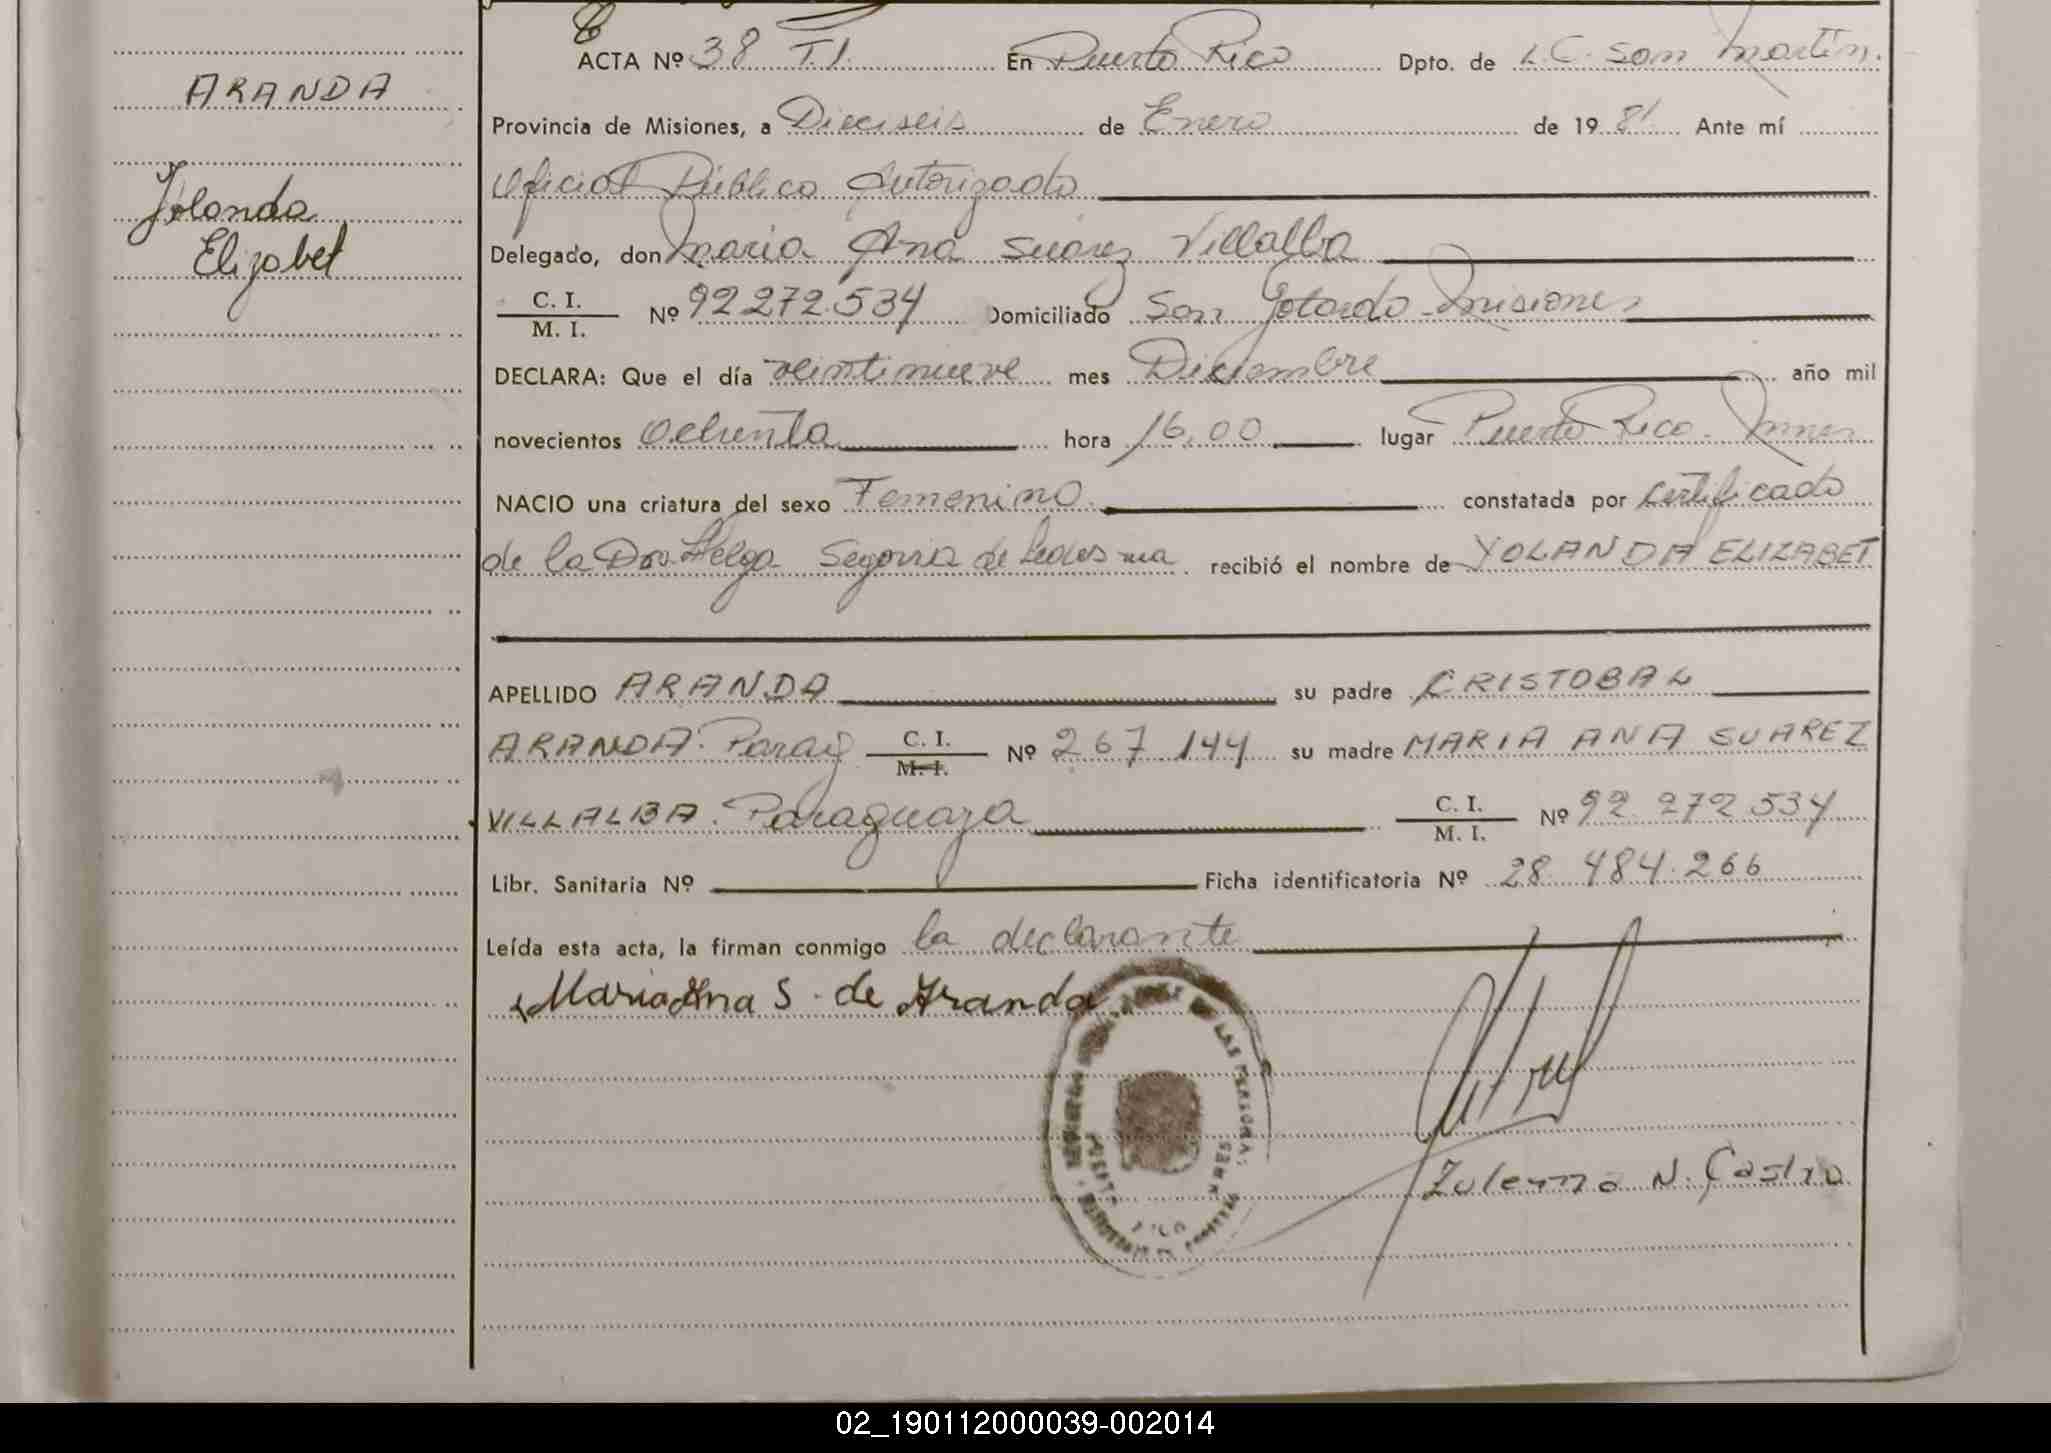 ARANDA
Yolanda
Elizabet
ACTA Nº 38 T.I. En Puerto Rico Dpto. de L.G. San Martín.
Provincia de Misiones, a Dieciseis de Enero de 1981 Ante mí
Oficial Público Autorizado
Delegado, don Maria Ana Suarez Villalba
C. I.
M. I. Nº 92.272.534 Domiciliado San Gotardo - Misiones
DECLARA: Que el día veintinueve mes Diciembre año mil
novecientos Ochenta hora 16,00 lugar Puerto Rico - Mnes
NACIO una criatura del sexo Femenino constatada por certificado
de la Dra. Helga Segovia de Ledesma recibió el nombre de YOLANDA ELIZABET
APELLIDO ARANDA su padre CRISTOBAL
ARANDA. Parag C. I. Nº 267.144 su madre MARIA ANA SUAREZ
M. I.
VILLALBA. Paraguaya C. I. Nº 92.272.534
M. I.
Libr. Sanitaria Nº Ficha identificatoria Nº 28.484.266
Leída esta acta, la firman conmigo la declarante
Maria Ana S. de Aranda
DE LAS PERSONAS
PUERTO RICO
Zulema N. Castro
02_190112000039-002014